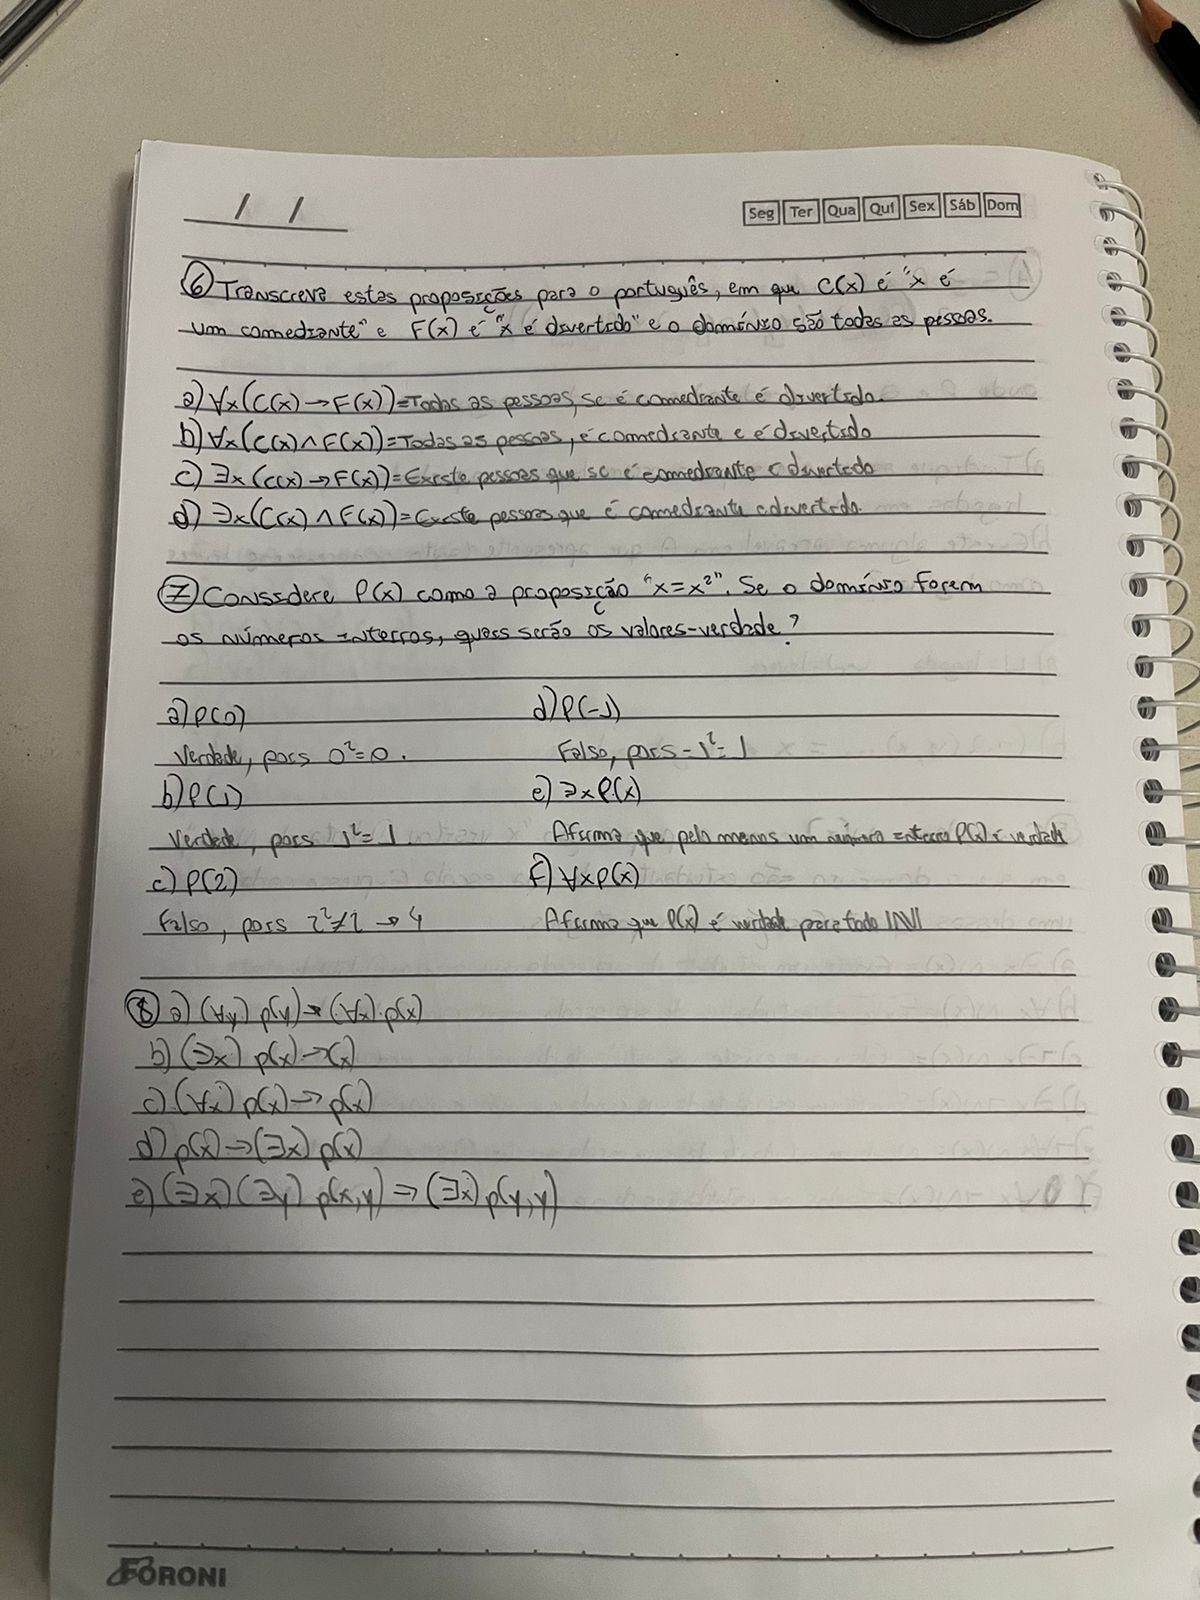 / /
Seg Ter Qua Qui Sex Sáb Dom
6 Transcreva estas proposições para o português, em que C(x) é "x é
um comediante" e F(x) é "x é divertido" e o domínio são todas as pessoas.
a) ∀x(C(x)→F(x))=Todas as pessoas, se é comediante é divertido.
b) ∀x(C(x)∧F(x))=Todas as pessoas, é comediante e é divertido
c) ∃x(C(x)→F(x))=Existe pessoas que se é comediante é divertido
d) ∃x(C(x)∧F(x))=Existe pessoas que é comediante e divertido.
7 Considere P(x) como a proposição "x=x²". Se o domínio forem
os números inteiros, quais serão os valores-verdade?
a) P(0)
Verdade, pois 0²=0.
b) P(1)
Verdade, pois 1²=1.
c) P(2)
Falso, pois 2²≠2 → 4
d) P(-1)
Falso, pois -1²=1
e) ∃xP(x)
Afirma que pelo menos um número inteiro P(x) é verdade
f) ∀xP(x)
Afirma que P(x) é verdade para todo
8 a) (∀y) p(y)→(∀x) p(x)
b) (∃x) p(x)→(x)
c) (∀x) p(x)→p(x)
d) p(x)→(∃x) p(x)
e) (∃x)(∃y) p(x,y)→(∃x) p(y,y)
FORONI